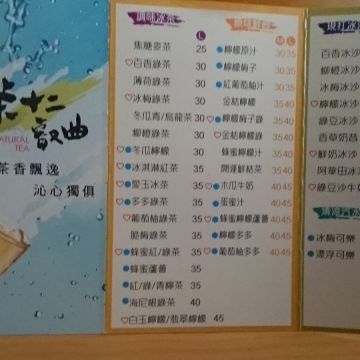 茶十二
歌曲
NATURAL
TEA
茶香飄逸
沁心獨俱
調味冰茶
L
焦糖麥茶 25
百香綠茶 30
薄荷綠茶 30
冰梅綠茶 30
冬瓜青/烏龍茶 30
柳橙綠茶 30
冬瓜檸檬 30
冰淇淋紅茶 35
愛玉冰茶 35
多多綠茶 35
葡萄柚綠茶 35
脆梅綠茶 35
蜂蜜紅/綠茶 35
蜂蜜蘆薈 35
紅/綠/青檸茶 35
海尼根綠茶 40
白玉檸檬/翡翠檸檬 45
M L
檸檬原汁 30 35
檸檬梅子 30 35
紅葡萄柚汁 30 35
金桔檸檬 35 40
檸檬梅子綠 35 40
金桔檸檬綠 35 40
蜂蜜檸檬汁 35 40
開運鮮桔茶 35 40
木瓜牛奶 40 45
蛋蜜汁 40 45
蜂蜜檸檬蘆薈 40 45
檸檬多多 40 45
葡萄柚多多 40 45
現打冰
百香冰沙
柳橙冰沙
冰梅冰沙
綠豆冰沙
百草奶昔
鮮奶冰沙
阿華田冰
綠豆沙牛
冰梅可樂
漂浮可樂